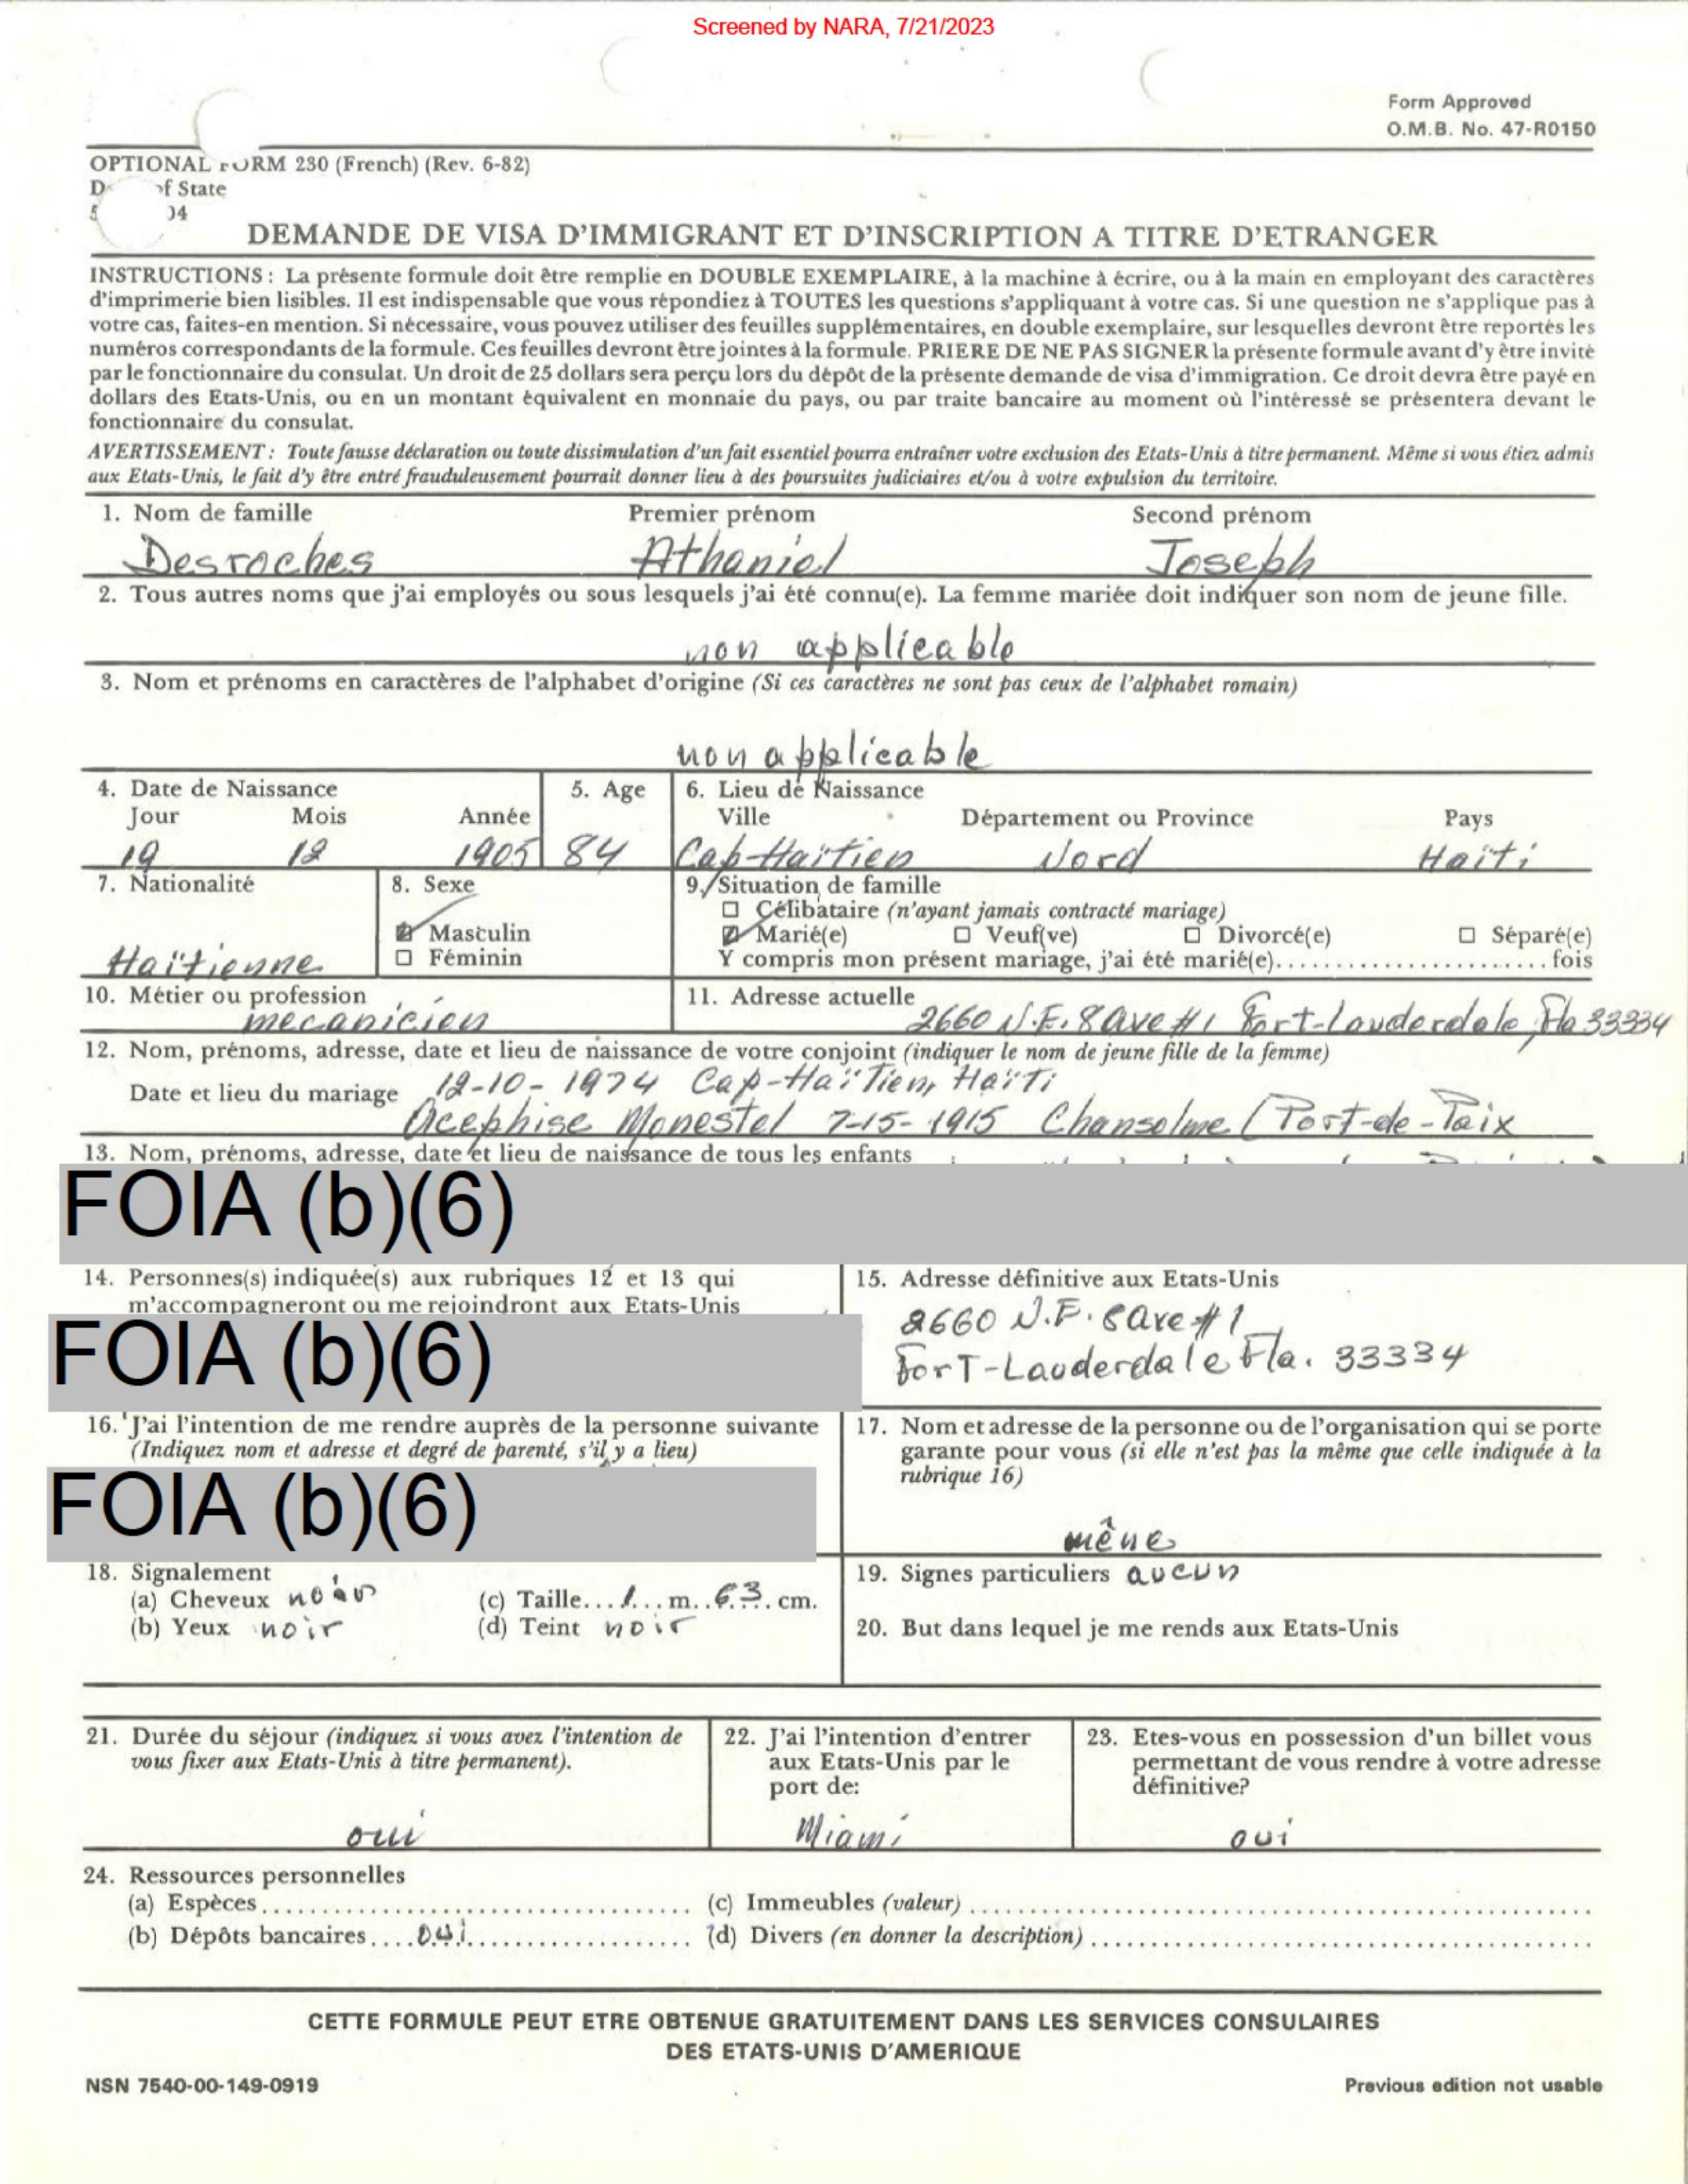 Screened by NARA, 7/21/2023
Form Approved
O.M.B. No. 47-R0150
OPTIONAL FORM 230 (French) (Rev. 6-82)
of State
DEMANDE DE VISA D'IMMIGRANT ET D'INSCRIPTION A TITRE D'ETRANGER
INSTRUCTIONS : La présente formule doit être remplie en DOUBLE EXEMPLAIRE, à la machine à écrire, ou à la main en employant des caractères
d'imprimerie bien lisibles. Il est indispensable que vous répondiez à TOUTES les questions s'appliquant à votre cas. Si une question ne s'applique pas à
votre cas, faites-en mention. Si nécessaire, vous pouvez utiliser des feuilles supplémentaires, en double exemplaire, sur lesquelles devront être reportés les
numéros correspondants de la formule. Ces feuilles devront être jointes à la formule. PRIERE DE NE PAS SIGNER la présente formule avant d'y être invité
par le fonctionnaire du consulat. Un droit de 25 dollars sera perçu lors du dépôt de la présente demande de visa d'immigration. Ce droit devra être payé en
dollars des Etats-Unis, ou en un montant équivalent en monnaie du pays, ou par traite bancaire au moment où l'intéressé se présentera devant le
fonctionnaire du consulat.
AVERTISSEMENT : Toute fausse déclaration ou toute dissimulation d'un fait essentiel pourra entraîner votre exclusion des Etats-Unis à titre permanent. Même si vous étiez admis
aux Etats-Unis, le fait d'y être entré frauduleusement pourrait donner lieu à des poursuites judiciaires et/ou à votre expulsion du territoire.
1. Nom de famille Premier prénom Second prénom
Desroches Athaniel Joseph
2. Tous autres noms que j'ai employés ou sous lesquels j'ai été connu(e). La femme mariée doit indiquer son nom de jeune fille.
non applicable
3. Nom et prénoms en caractères de l'alphabet d'origine (Si ces caractères ne sont pas ceux de l'alphabet romain)
non applicable
4. Date de Naissance 5. Age 6. Lieu de Naissance
Jour Mois Année Ville Département ou Province Pays
19 12 1905 84 Cap-Haïtien Nord Haïti
7. Nationalité 8. Sexe 9. Situation de famille
☐ Célibataire (n'ayant jamais contracté mariage)
☑ Masculin ☑ Marié(e) ☐ Veuf(ve) ☐ Divorcé(e) ☐ Séparé(e)
Haïtienne ☐ Féminin Y compris mon présent mariage, j'ai été marié(e)......................fois
10. Métier ou profession 11. Adresse actuelle
mécanicien 2660 N.E. 8 ave #1 Fort-Lauderdale, Fla 33334
12. Nom, prénoms, adresse, date et lieu de naissance de votre conjoint (indiquer le nom de jeune fille de la femme)
Date et lieu du mariage 12-10-1974 Cap-Haïtien, Haïti
Acephise Monestel 7-15-1915 Chansolme / Port-de-Paix
13. Nom, prénoms, adresse, date et lieu de naissance de tous les enfants
FOIA (b)(6)
14. Personnes(s) indiquée(s) aux rubriques 12 et 13 qui
m'accompagneront ou me rejoindront aux Etats-Unis
FOIA (b)(6)
15. Adresse définitive aux Etats-Unis
2660 N.E. 8 ave #1
Fort-Lauderdale Fla. 33334
16. J'ai l'intention de me rendre auprès de la personne suivante
(Indiquez nom et adresse et degré de parenté, s'il y a lieu)
FOIA (b)(6)
17. Nom et adresse de la personne ou de l'organisation qui se porte
garante pour vous (si elle n'est pas la même que celle indiquée à la
rubrique 16)
mêne
18. Signalement
(a) Cheveux noir (c) Taille...1...m..63.cm.
(b) Yeux noir (d) Teint noir
19. Signes particuliers aucun
20. But dans lequel je me rends aux Etats-Unis
21. Durée du séjour (indiquez si vous avez l'intention de
vous fixer aux Etats-Unis à titre permanent).
oui
22. J'ai l'intention d'entrer
aux Etats-Unis par le
port de:
Miami
23. Etes-vous en possession d'un billet vous
permettant de vous rendre à votre adresse
définitive?
oui
24. Ressources personnelles
(a) Espèces................................ (c) Immeubles (valeur)................................
(b) Dépôts bancaires....oui.................. (d) Divers (en donner la description)................................
CETTE FORMULE PEUT ETRE OBTENUE GRATUITEMENT DANS LES SERVICES CONSULAIRES
DES ETATS-UNIS D'AMERIQUE
NSN 7540-00-149-0919 Previous edition not usable